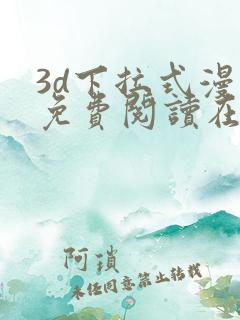 3d下拉式漫
免費閱讀在
阿瑣
未经同意禁止转载